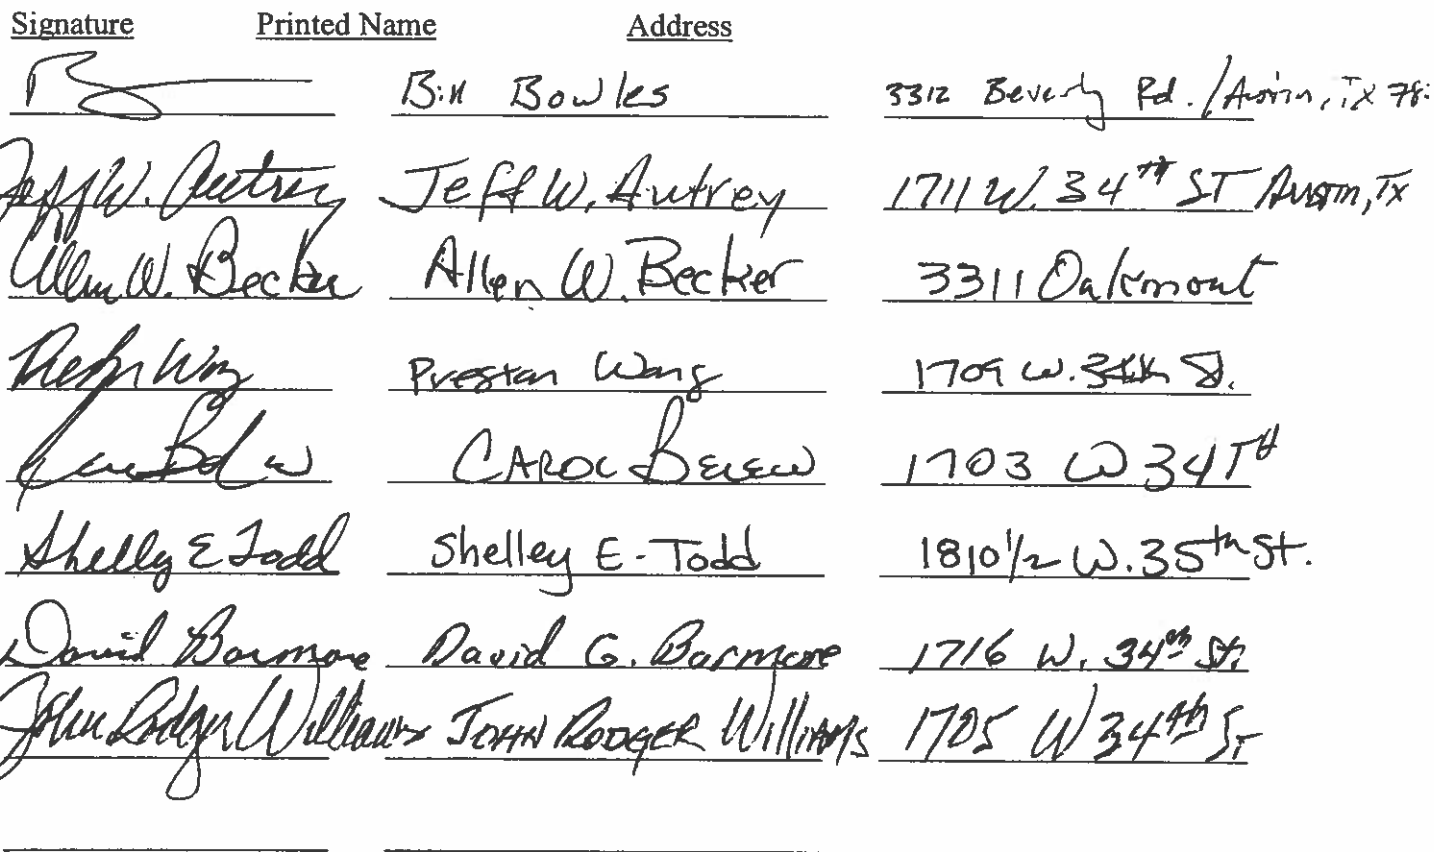 Signature Printed Name Address
Bill Bowles 3312 Beverly Rd. / Austin, TX 78
Jeff W. Autrey Jeff W. Autrey 1711 W. 34th ST Austin, Tx
Allen W. Becker Allen W. Becker 3311 Oakmont
Preston Wang 1709 W. 34th St.
CAROL BELEW 1703 W 34TH
Shelley E Todd Shelley E-Todd 1810 1/2 W. 35th St.
David Barmore David G. Barmore 1716 W. 34th St.
John Rodger Williams JOHN RODGER WILLIAMS 1705 W 34th ST